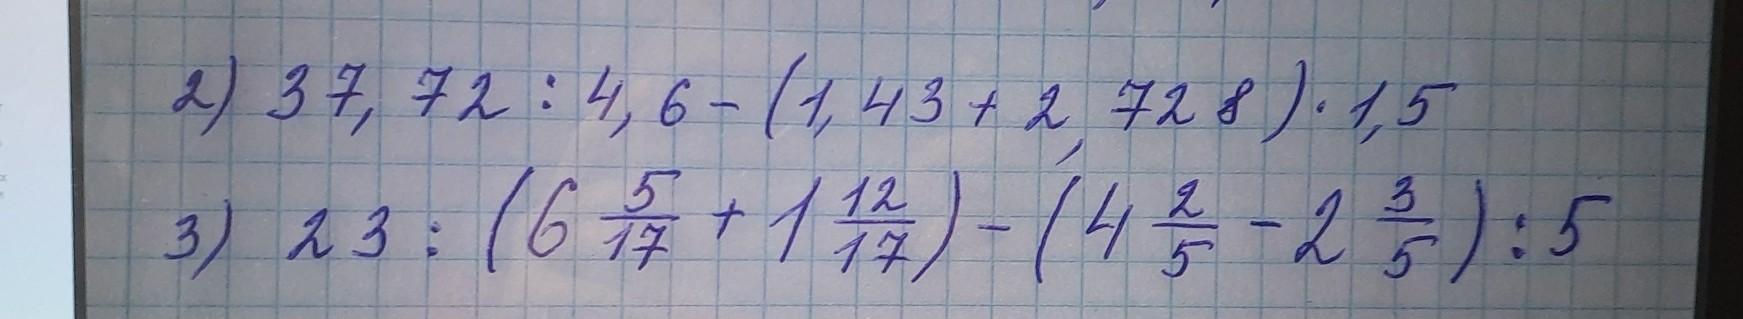 2) 37,72 : 4,6 - (1,43 + 2,728) · 1,5
3) 23 : (6 5/17 + 1 12/17) - (4 2/5 - 2 3/5) : 5